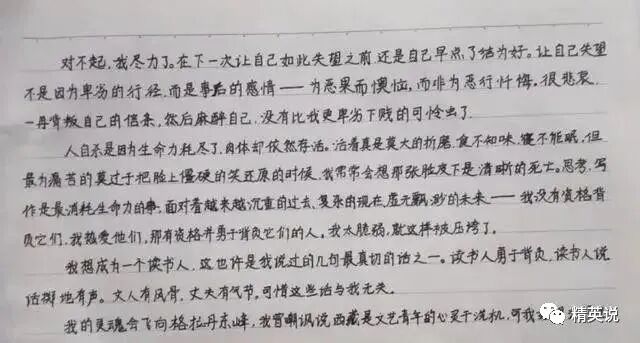 对不起,我尽力了。在下一次让自己如此失望之前,还是自己早点了结为好。让自己失望
不是因为卑劣的行径,而是事后的感情——为恶果而懊恼,而非为恶行忏悔。很悲哀,
一再背叛自己的信条,然后麻醉自己,没有比我更卑劣下贱的可怜虫了。
人自杀是因为生命力耗尽了,肉体却依然存活。活着真是莫大的折磨,食不知味,寝不能眠,但
最为痛苦的莫过于把脸上僵硬的笑还原的时候,我常常会想那张脸皮下是清晰的死亡。思考、写
作是最消耗生命力的事,面对着越来越沉重的过去、复杂的现在、虚无飘渺的未来——我没有资格背
负它们,我热爱他们,那有资格并勇于背负它们的人。我太脆弱,就这样被压垮了。
我想成为一个读书人,这也许是我说过的几句最真切的话之一。读书人勇于背负,读书人说
话掷地有声。文人有风骨,丈夫有气节,可惜这些话与我无关。
我的灵魂会飞向格拉丹东峰,我曾嘲讽说西藏是文艺青年的心灵干洗机,可我
精英说